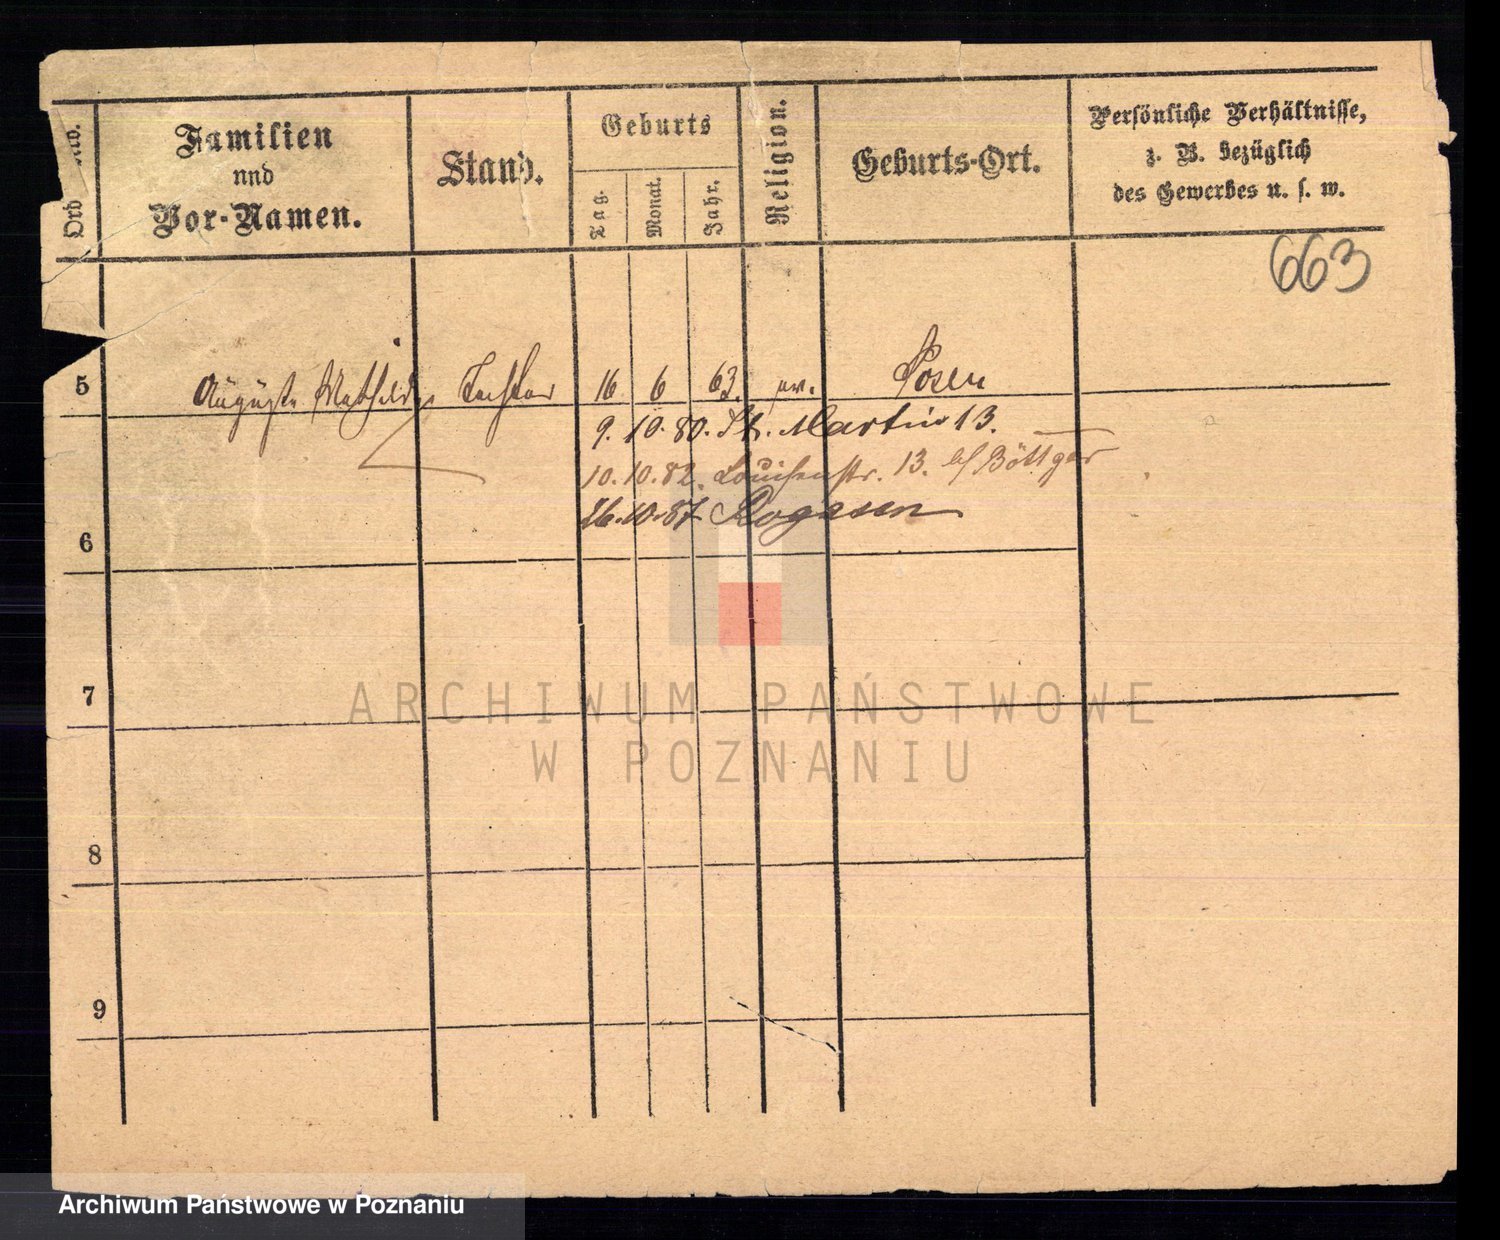 Ord
Familien
und
Vor-Namen.
Stand.
Geburts
Tag.
Monat.
Jahr.
Religion.
Geburts-Ort.
Persönliche Verhältnisse,
z. B. bezüglich
des Gewerbes u. s. w.
663
5 Auguste Mathilde Tochter 16 6 63. ev. Posen
9. 10. 80. St. Martin 13.
10. 10. 82. Louisenstr. 13. bei Böttger
26. 10. 87 Rogasen
6
7
8
9
ARCHIWUM PAŃSTWOWE
W POZNANIU
Archiwum Państwowe w Poznaniu